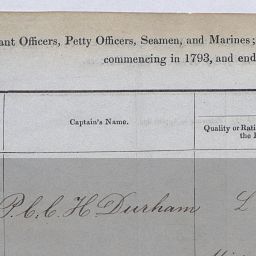 ant Officers, Petty Officers, Seamen, and Marines;
commencing in 1793, and end
Captain's Name.
Quality or Rati
the
P. C. C. H Durham L